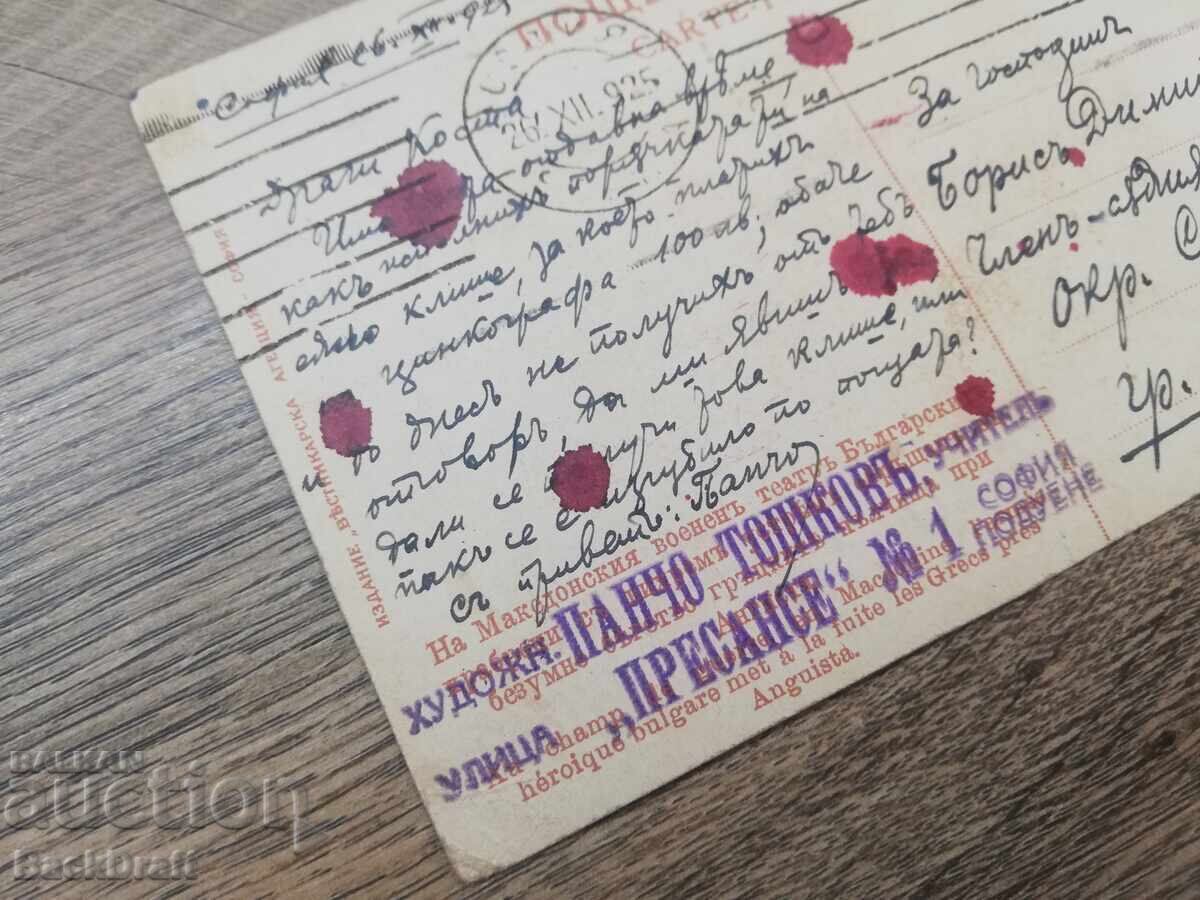 ПОЩЕ
CARTE-
София 26.XII.925
26.XII.925
Драги Коста
Има за отдавна време,
какъ изпълнихъ поръчката ти на
едно клише, за което платихъ
цинкографа 100 лв; обаче
и до днесъ не получихъ отъ тебъ
отговоръ, да ми явишъ
дали се получи това клише, или
пъкъ се е изгубило по пощата?
Съ приветъ: Панчо
За господинъ
Борисъ Дими
Членъ-съдия
Окр. С
гр.
ИЗДАНИЕ „ВѢСТНИКАРСКА АГЕНЦИЯ - СОФИЯ
На Македонския военен театръ Български
безумно бѣгство гръцките пълчища при
Au champ Macédoine
héroique bulgare met à la fuite les Grecs près
Anguista.
ХУДОЖН. ПАНЧО ТОШКОВЪ, УЧИТЕЛЬ
УЛИЦА „ПРЕСАНСЕ“ № 1 СОФИЯ
ПОДУЕНЕ
BALKAN
auction
BackDraft